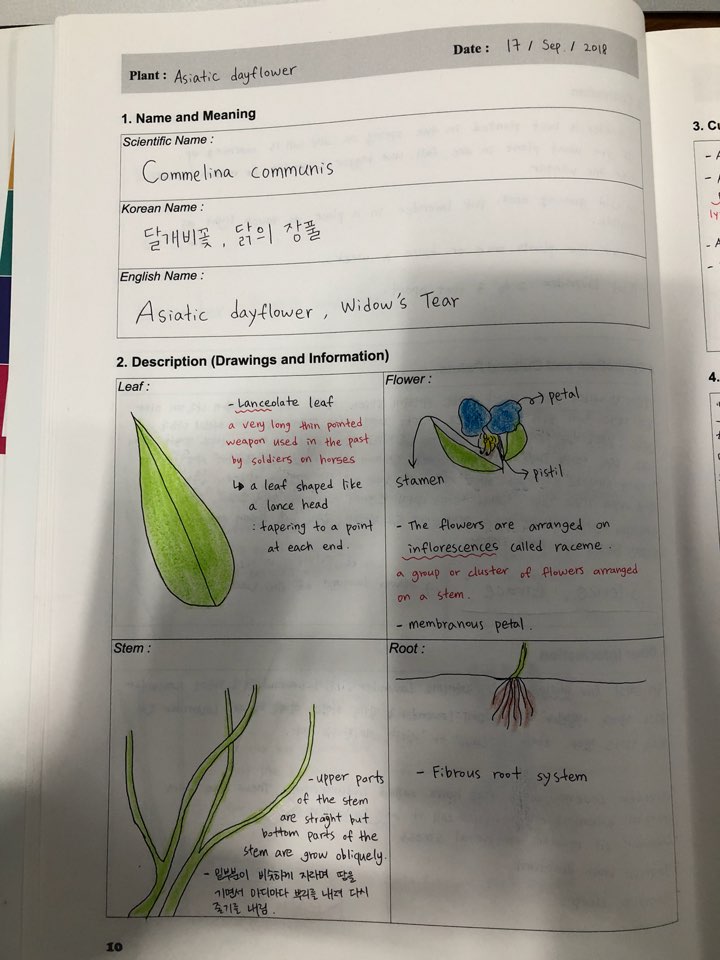 Plant : Asiatic dayflower
Date : 17 / Sep. / 2018
1. Name and Meaning
Scientific Name :
Commelina communis
Korean Name :
달개비꽃, 닭의 장풀
English Name :
Asiatic dayflower, Widow's Tear
2. Description (Drawings and Information)
Leaf :
- Lanceolate leaf
a very long thin pointed
weapon used in the past
by soldiers on horses
↳ a leaf shaped like
a lance head
: tapering to a point
at each end.
Flower :
petal
stamen
pistil
- The flowers are arranged on
inflorescences called raceme.
a group or cluster of flowers arranged
on a stem.
- membranous petal.
Stem :
- upper parts
of the stem
are straght but
bottom parts of the
stem are grow obliquely.
- 밑부분이 비슷하게 자라며 땅을
기면서 마디마다 뿌리를 내려 다시
줄기를 내림.
Root :
- Fibrous root system
10
3. Cu
- A
-
ly
- A
-
4.